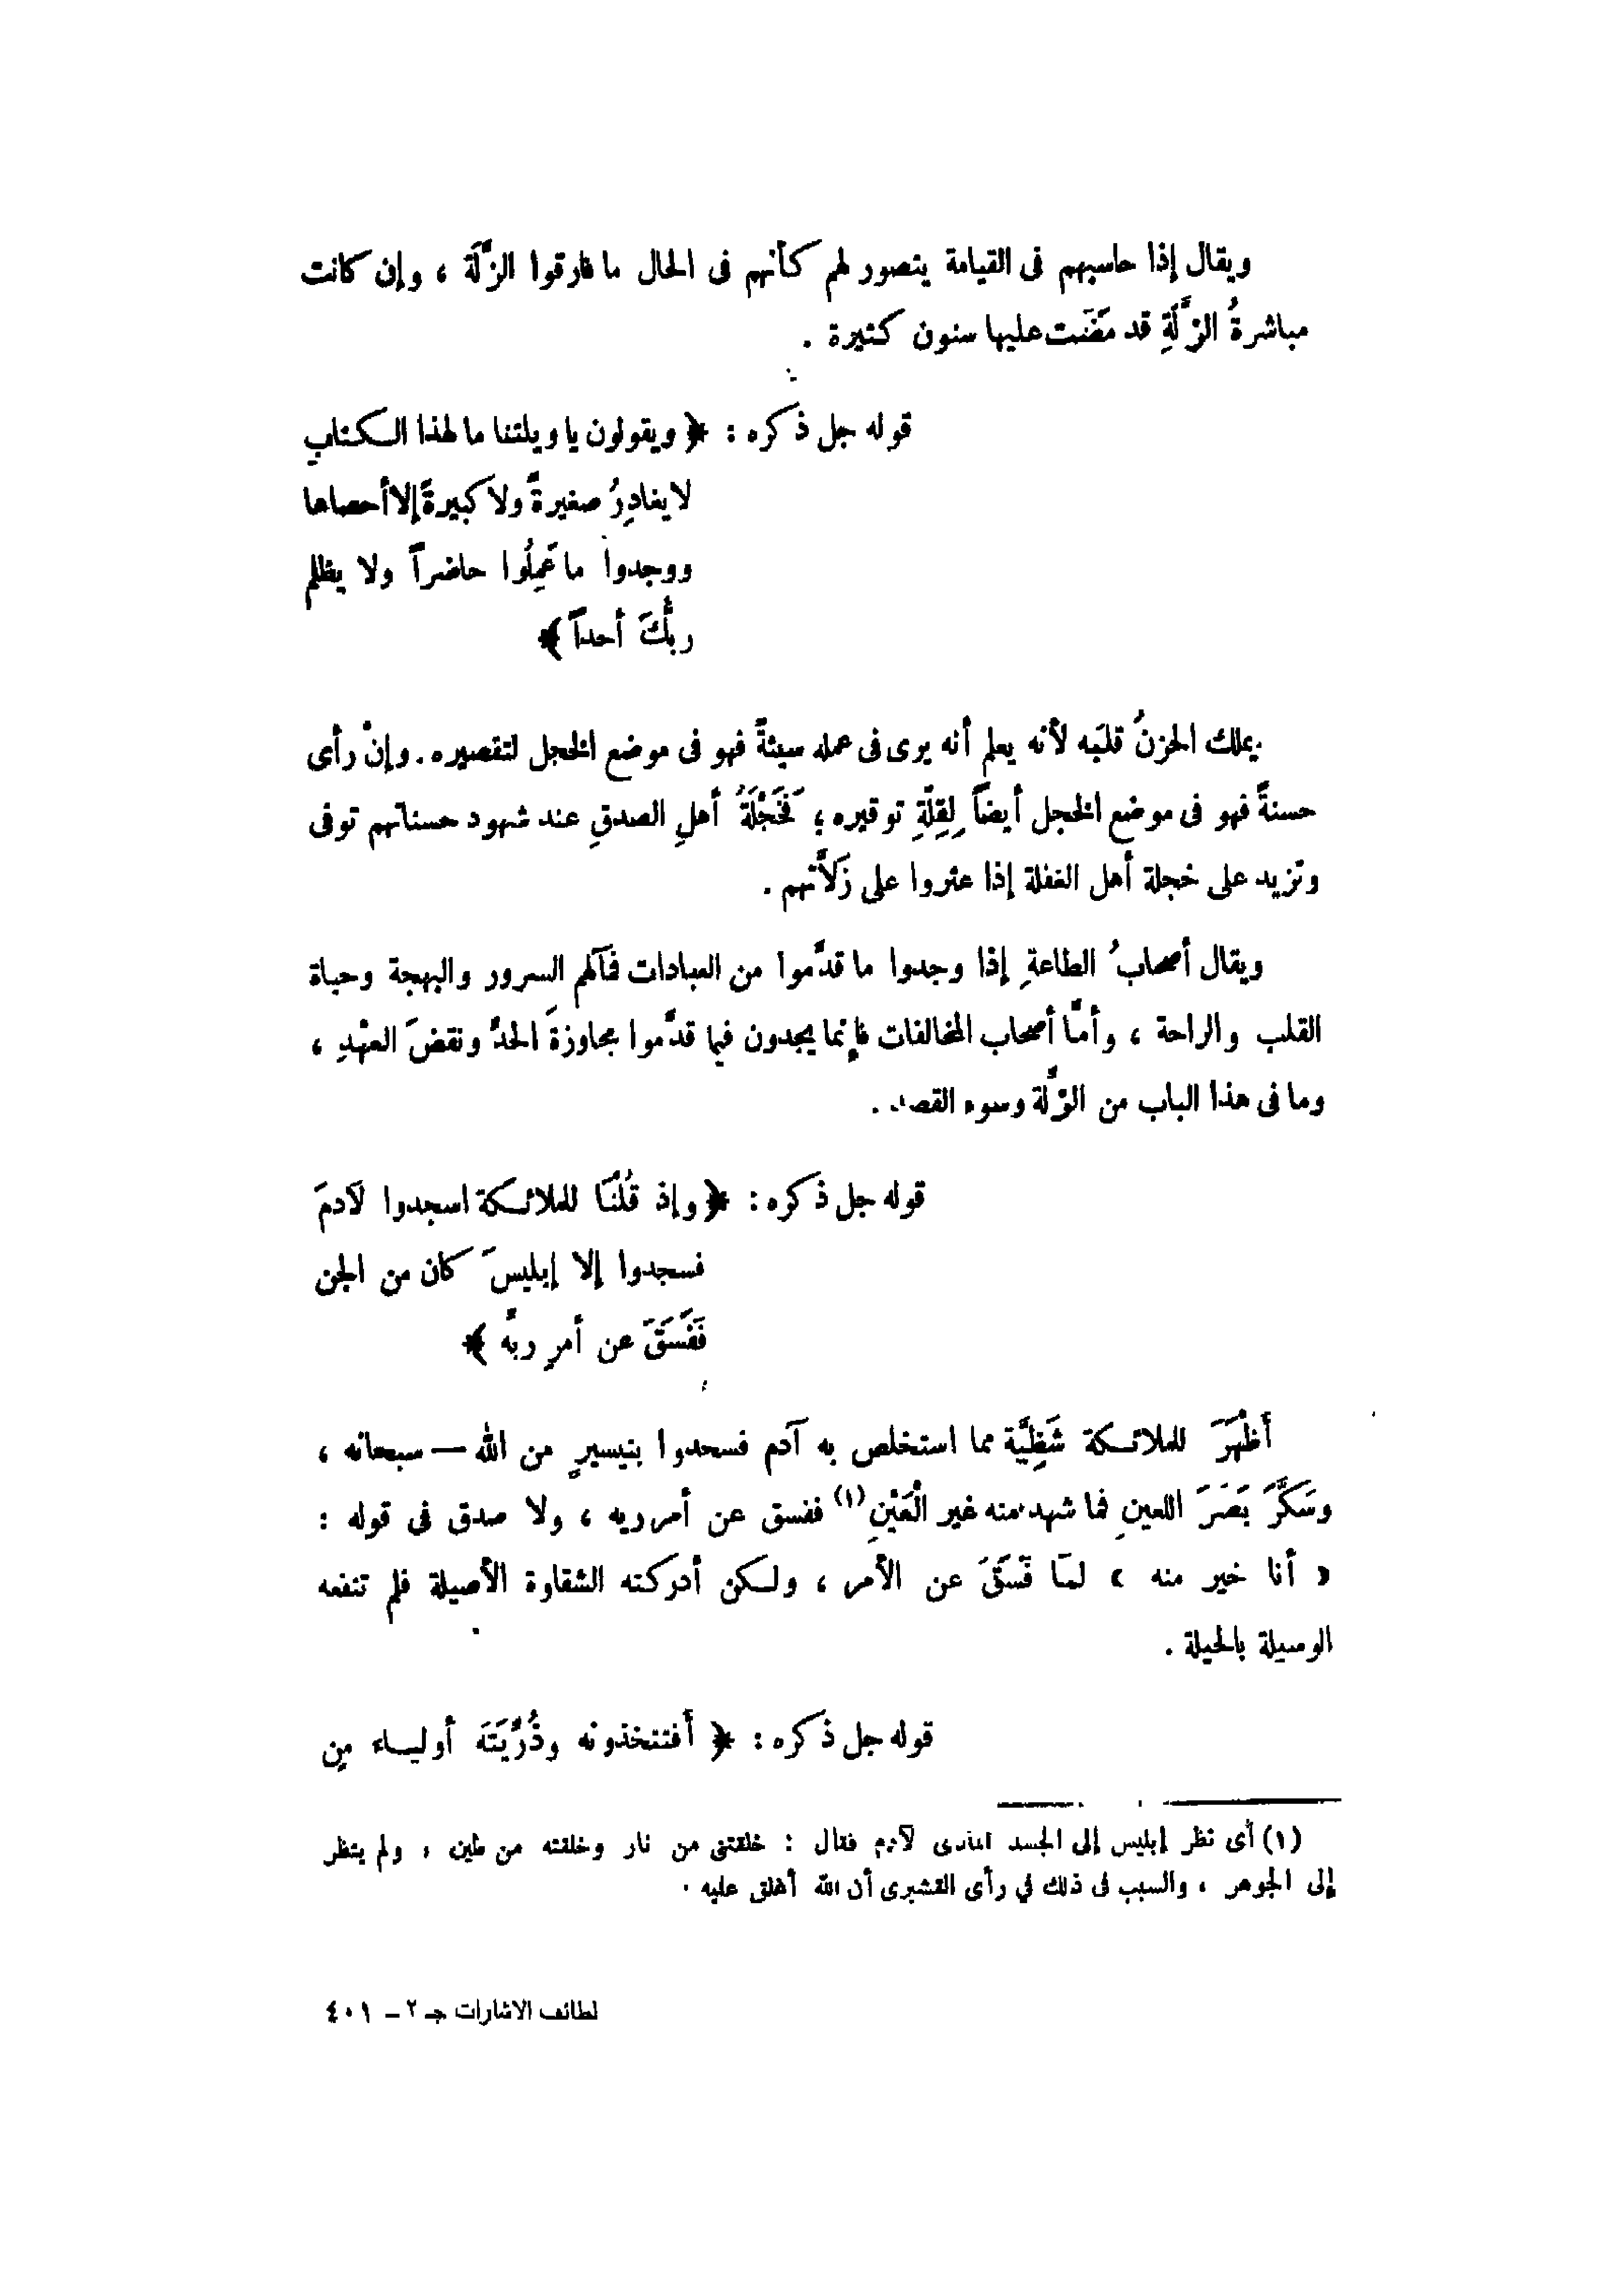 ويقال إذا حاسبهم فى القيامة يتصور لهم كأنهم فى الحال ما فارقوا الزَّلَّة ، وإن كانت
مباشرةُ الزَّلَّةِ قد مَضَت عليها سنون كثيرة .
قوله جل ذكره : ﴿ ويقولون يا ويلتنا ما لهذا الكتابِ
لا يغادِرُ صغيرةً ولا كبيرةً إلا أحصاها
ووجدوا ما عَمِلُوا حاضراً ولا يظلم
ربُّكَ أحداً ﴾
يملك الحزنُ قلبَه لأنه يعلم أنه يرى فى عمله سيئةً فهو فى موضع الخجل لتقصيره . وإنْ رأى
حسنةً فهو فى موضع الخجل أيضاً لِقِلَّةِ توقيره ؛ فَخَجْلَةُ أهلِ الصدقِ عند شهود حسناتهم توفى
وتزيد على خجلة أهل الغفلة إذا عثروا على زَلاَّتهم .
ويقال أصحابُ الطاعةِ إذا وجدوا ما قدَّموا من العبادات فمآلهم السرور والبهجة وحياة
القلب والراحة ، وأمَّا أصحاب المخالفات فإنما يجدون فيما قدَّموا مجاوزةَ الحدِّ ونقضَ العهْدِ ،
وما فى هذا الباب من الزَّلة وسوء القصد .
قوله جل ذكره : ﴿ وإذ قُلْنَا للملائكة اسجدوا لآدمَ
فسجدوا إلا إبليسَ كان من الجن
فَفَسَقَ عن أمرِ ربِّه ﴾
أظْهَرَ للملائكة شَظِيَّة مما استخلص به آدم فسجدوا بتيسيرٍ من الله — سبحانه ،
وسَكَّرَ بَصَرَ اللعينِ فما شهد منه غير الْعَيْنِ (١) ففسق عن أمر ربه ، ولا صدق فى قوله :
« أنا خير منه » لمَّا فَسَقَ عن الأمر ، ولكن أدركته الشقاوة الأصيلة فلم تنفعه
الوسيلة بالحيلة .
قوله جل ذكره : ﴿ أفتتخذونه وذُرِّيَّتَه أولياء مِن
(١) أى نظر إبليس إلى الجسد المادى لآدم فقال : خلقتنى من نار وخلقته من طين ، ولم ينظر
إلى الجوهر ، والسبب فى ذلك في رأى القشيرى أن الله أغلق عليه .
لطائف الاشارات جـ ٢ – ٤٠١